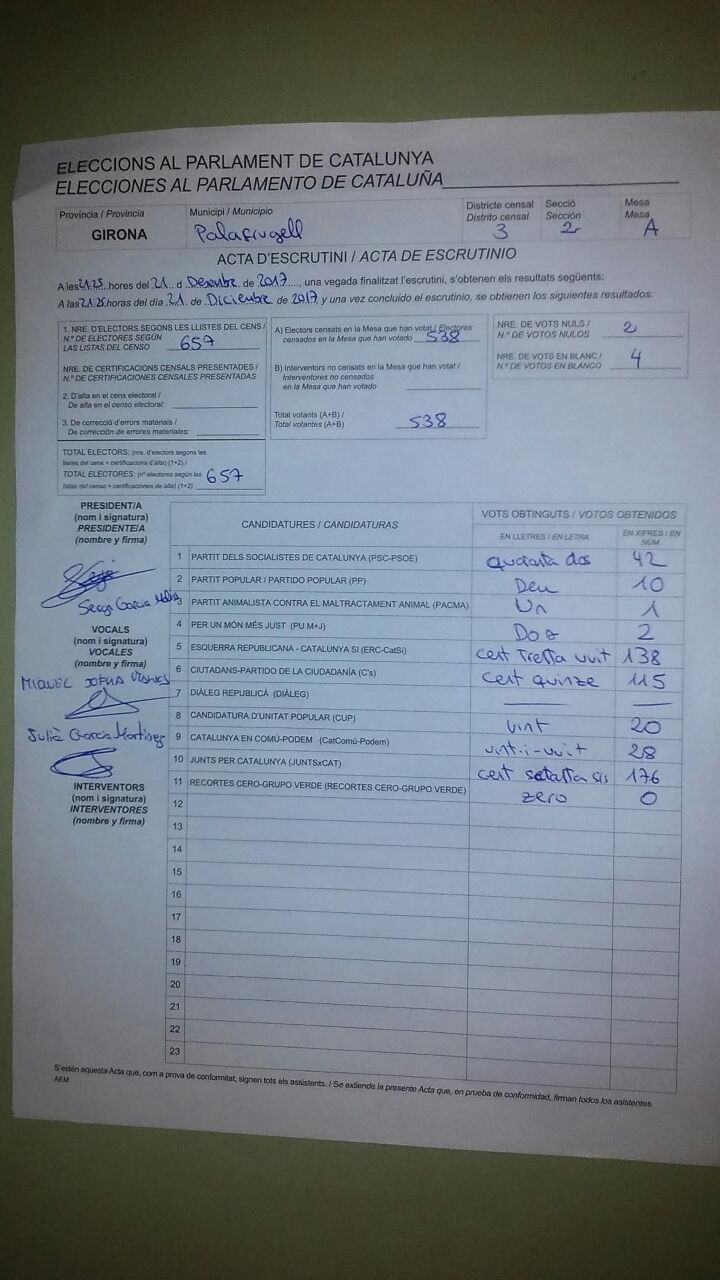 ELECCIONS AL PARLAMENT DE CATALUNYA
ELECCIONES AL PARLAMENTO DE CATALUÑA
Província / Provincia
GIRONA
Municipi / Municipio
Palafrugell
Districte censal
Distrito censal
3
Secció
Sección
2
Mesa
Mesa
A
ACTA D'ESCRUTINI / ACTA DE ESCRUTINIO
A les 21.25 hores del 21 d Desembre de 2017, una vegada finalitzat l'escrutini, s'obtenen els resultats següents:
A las 21:25 horas del día 21 de Diciembre de 2017 y una vez concluido el escrutinio, se obtienen los siguientes resultados:
1. NRE. D'ELECTORS SEGONS LES LLISTES DEL CENS /
N.º DE ELECTORES SEGÚN
LAS LISTAS DEL CENSO 657
NRE. DE CERTIFICACIONS CENSALS PRESENTADES /
N.º DE CERTIFICACIONES CENSALES PRESENTADAS
2. D'alta en el cens electoral /
De alta en el censo electoral:
3. De correcció d'errors materials /
De corrección de errores materiales:
TOTAL ELECTORS: (nre. d'electors segons les
llistes del cens + certificacions d'alta) (1+2) /
TOTAL ELECTORES: (nº electores según las
listas del censo + certificaciones de alta) (1+2) 657
A) Electors censats en la Mesa que han votat / Electores
censados en la Mesa que han votado 538
B) Interventors no censats en la Mesa que han votat /
Interventores no censados
en la Mesa que han votado
Total votants (A+B) /
Total votantes (A+B) 538
NRE. DE VOTS NULS /
N.º DE VOTOS NULOS 2
NRE. DE VOTS EN BLANC /
N.º DE VOTOS EN BLANCO 4
PRESIDENT/A
(nom i signatura)
PRESIDENTE/A
(nombre y firma)
Sergi Garcia
VOCALS
(nom i signatura)
VOCALES
(nombre y firma)
MIQUEL
Julià Garcia Martinez
INTERVENTORS
(nom i signatura)
INTERVENTORES
(nombre y firma)
CANDIDATURES / CANDIDATURAS
VOTS OBTINGUTS / VOTOS OBTENIDOS
EN LLETRES / EN LETRA
EN XIFRES / EN NÚM.
1 PARTIT DELS SOCIALISTES DE CATALUNYA (PSC-PSOE) quaranta dos 42
2 PARTIT POPULAR / PARTIDO POPULAR (PP) Deu 10
3 PARTIT ANIMALISTA CONTRA EL MALTRACTAMENT ANIMAL (PACMA) Un 1
4 PER UN MÓN MÉS JUST (PU M+J) Dos 2
5 ESQUERRA REPUBLICANA - CATALUNYA SI (ERC-CatSí) cent trenta vuit 138
6 CIUTADANS-PARTIDO DE LA CIUDADANÍA (C's) cent quinze 115
7 DIÀLEG REPUBLICÀ (DIÀLEG) — —
8 CANDIDATURA D'UNITAT POPULAR (CUP) vint 20
9 CATALUNYA EN COMÚ-PODEM (CatComú-Podem) vint-i-vuit 28
10 JUNTS PER CATALUNYA (JUNTSxCAT) cent setanta sis 176
11 RECORTES CERO-GRUPO VERDE (RECORTES CERO-GRUPO VERDE) zero 0
12
13
14
15
16
17
18
19
20
21
22
23
S'estén aquesta Acta que, com a prova de conformitat, signen tots els assistents. / Se extiende la presente Acta que, en prueba de conformidad, firman todos los asistentes.
AEM